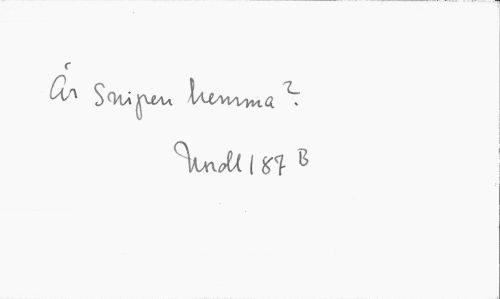 Är Snipen hemma?
Undl 187 B